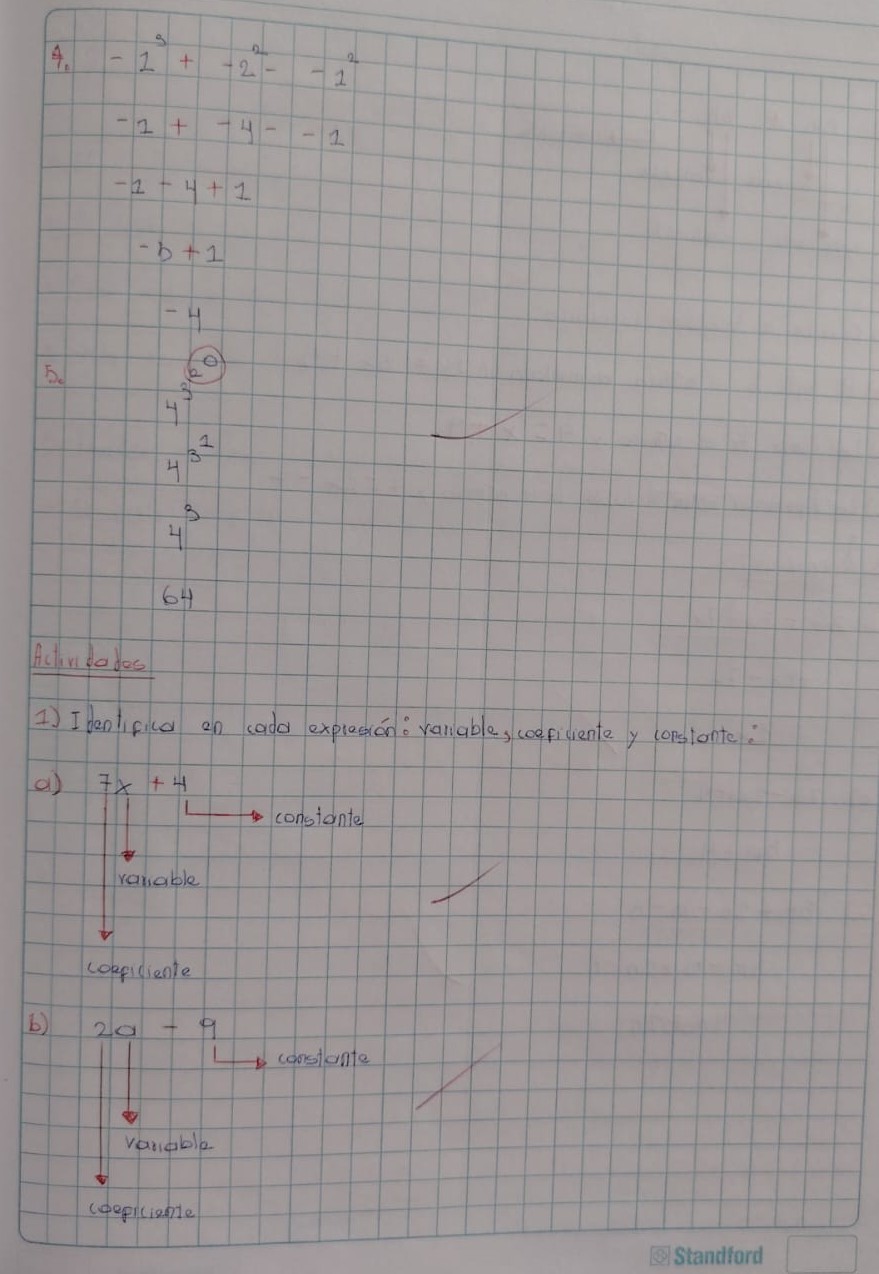 4. -1³ + -2² - -1²
-1 + -4 - -1
-1 - 4 + 1
-5 + 1
-4
5. 4^3^2^0
4^3^1
4³
64
Actividades
1) Identifica en cada expresión: variable, coeficiente y constante:
a) 7x + 4
constante
variable
coeficiente
b) 2a - 9
constante
variable
coeficiente
Standford